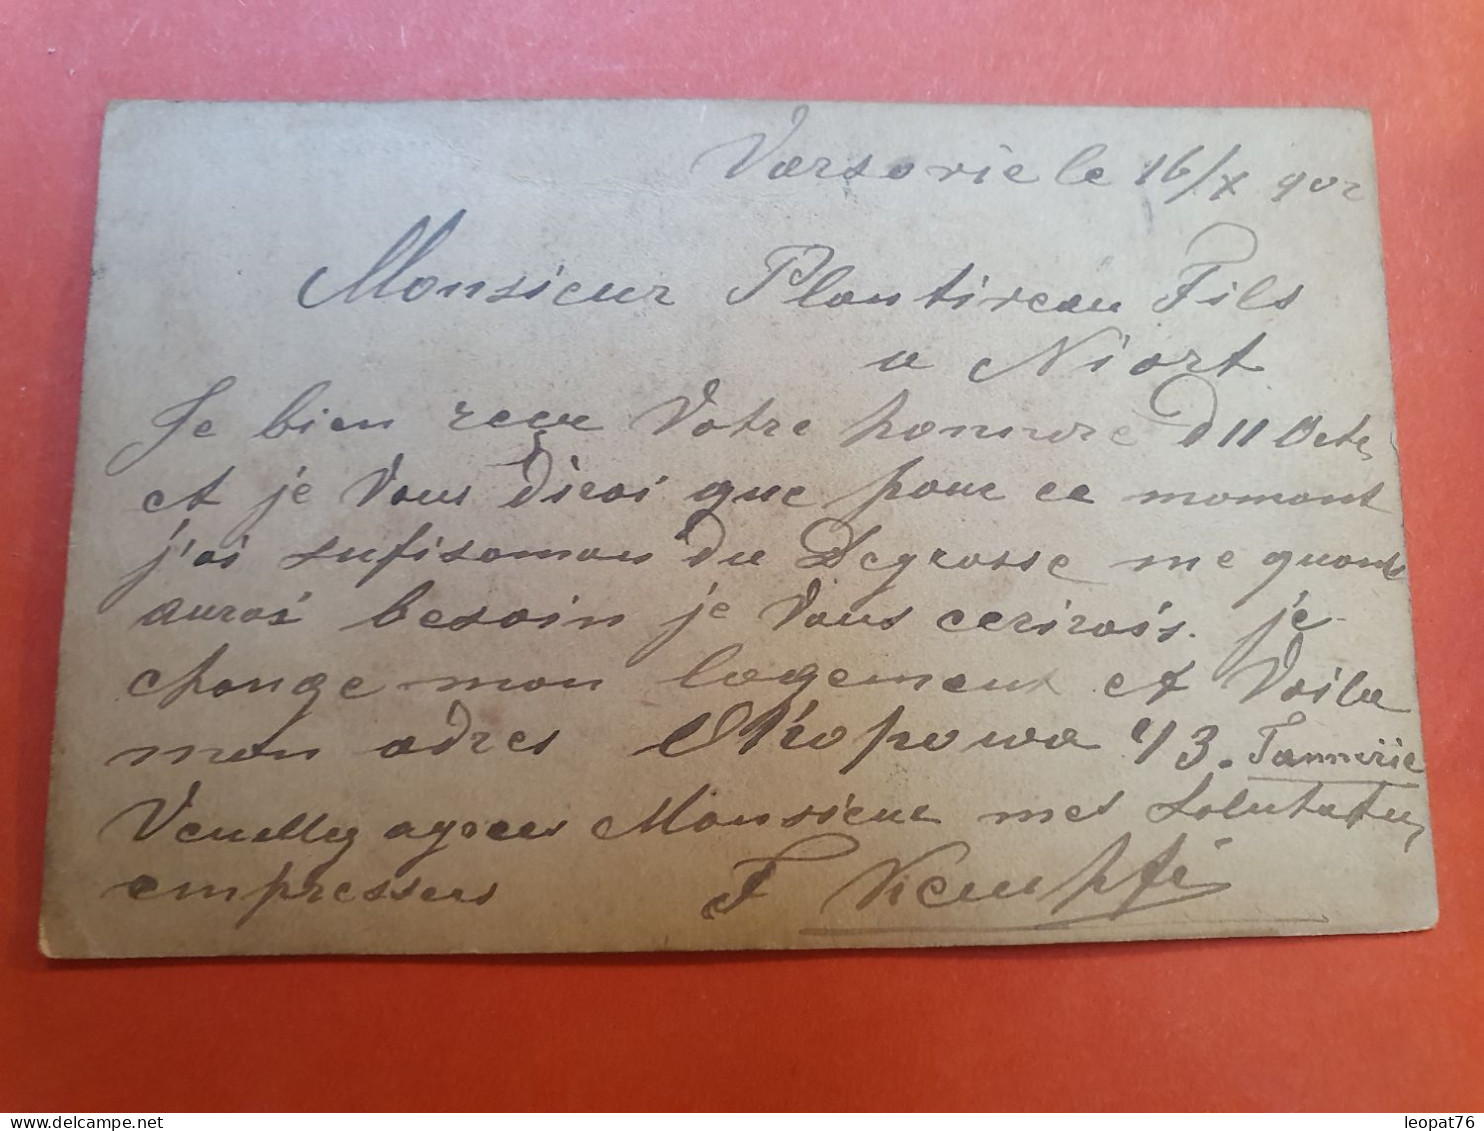 Varsovie le 16/X 902
Monsieur Plantiveau Fils
a Niort
Je bien reçu Votre honnure d 11 Octe
et je Vous dirai que pour ce momant
j'ai sufisoman du Degrasse me quant
aurai besoin je Vous cerirais. je
change mon logement et Voila
mon adres Okopowa 73. Tannerie
Veuellez agrees Monsieur mes Salutation
empresses F Kiempfi
leopat76